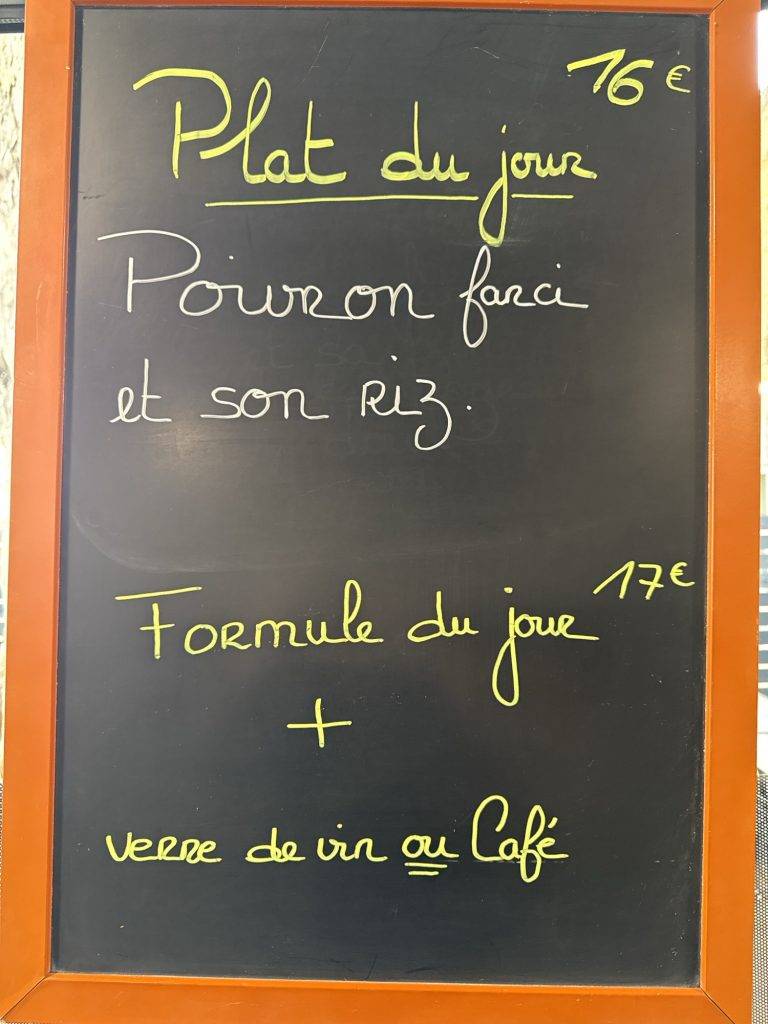 16€
Plat du jour
Poivron farci
et son riz.
Formule du jour 17€
+
verre de vin ou Café